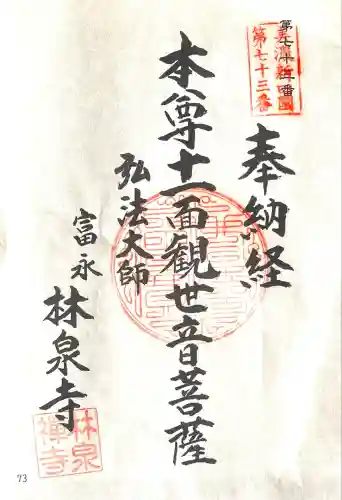 美濃新四國
第七十三番
奉納経
本尊十一面観世音菩薩
弘法大師
富永
林泉寺
林泉
禅寺
73